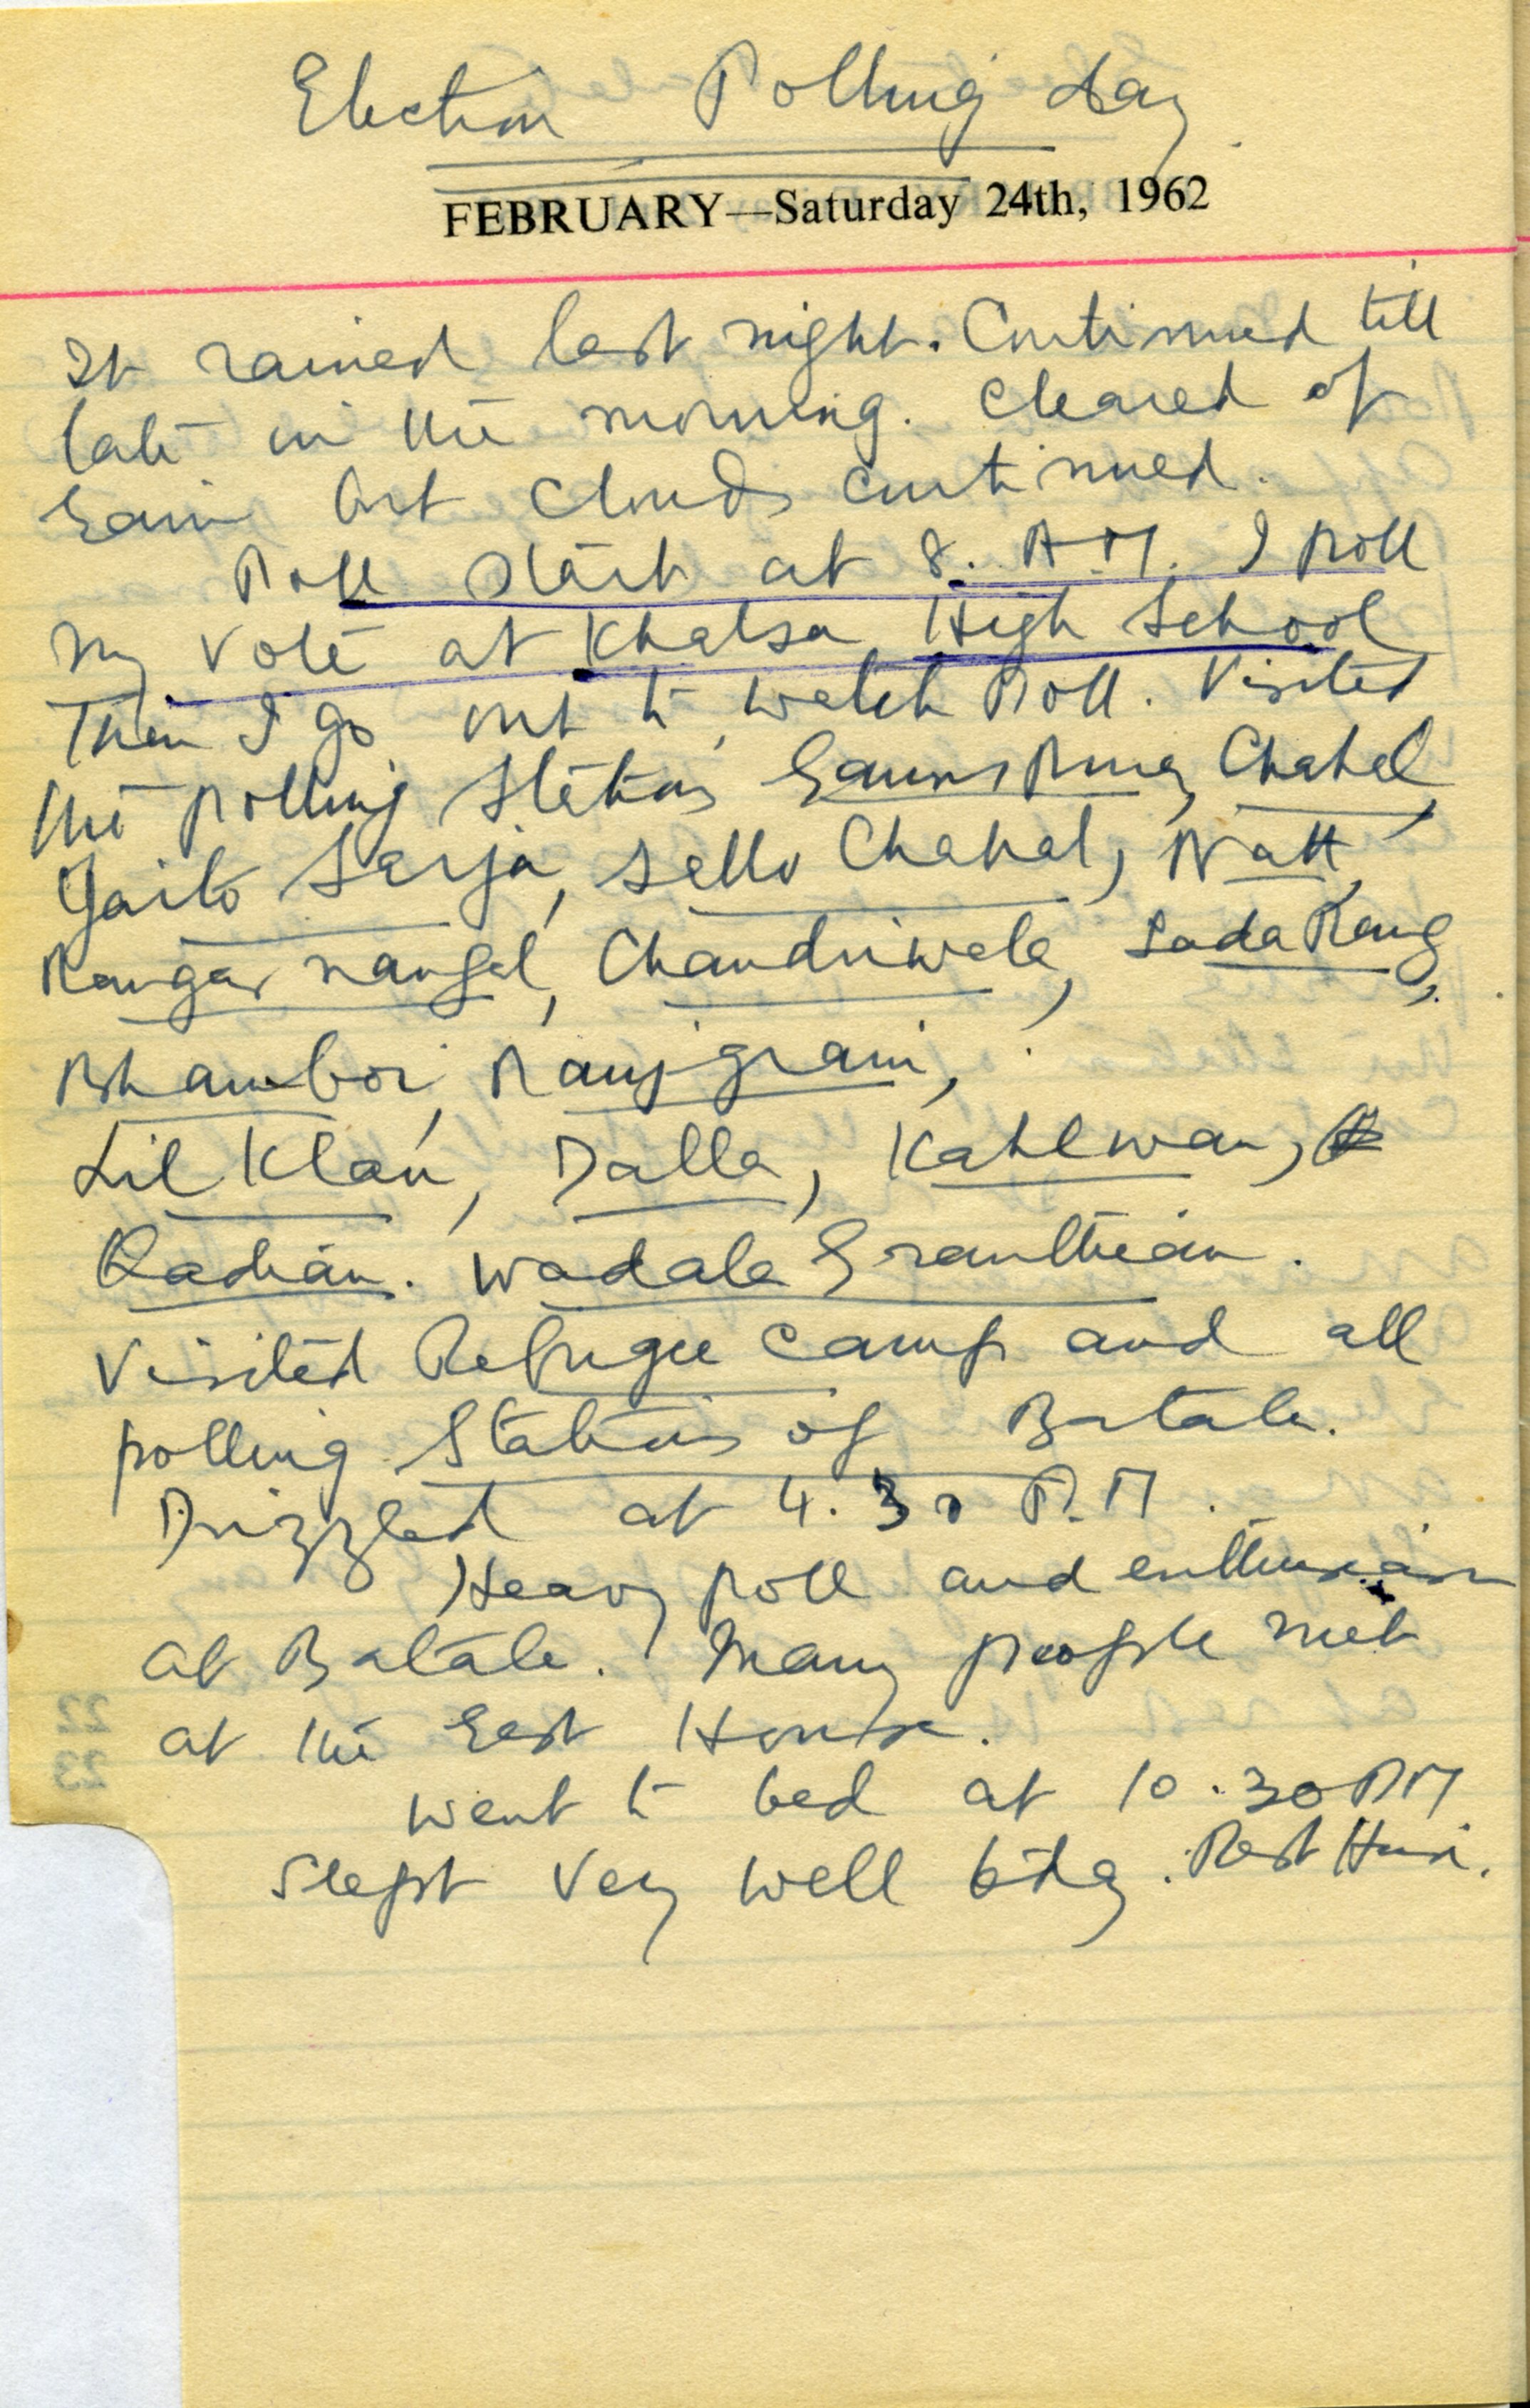 Election Polling day
FEBRUARY—Saturday 24th, 1962
It rained last night. Continued till
late in the morning. Cleared of
rain but clouds continued.
Poll start at 8. A.M. I poll
my vote at Khalsa High School
Then I go out to watch Poll. Visited
the polling stations Chahal,
Sarja, Sello Chahal, Natt,
Rangar nangal, Chandriwala, Sada Rang,
Bhamboi, Ranjgrain,
Lil Klan, Dalla, Kahlwan,
Qadian. Wadala Granthian.
Visited Refugee Camp and all
polling Stations of Batala.
Drizzled at 4.30 P.M.
Heavy poll and enthusiasm
at Batala. Many people met
at the Rest House.
Went to bed at 10.30 PM
Slept very well Rest House.
22
23